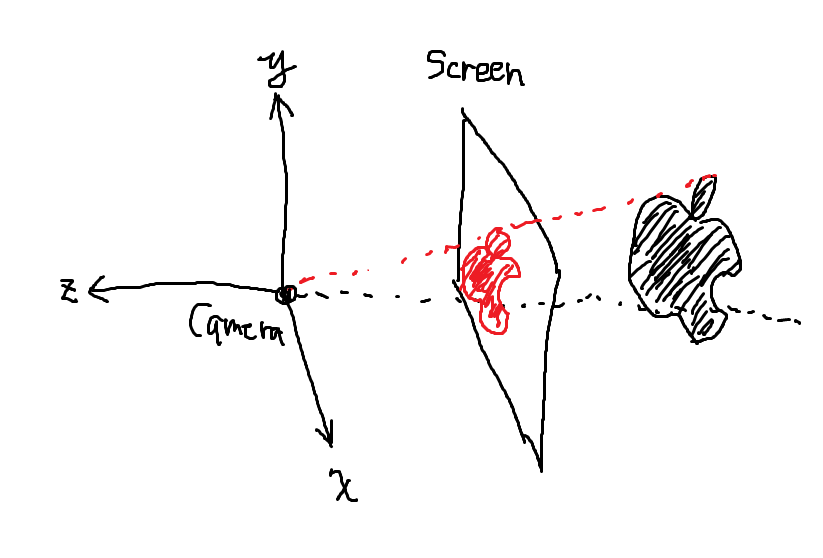 y
Screen
z
Camera
x